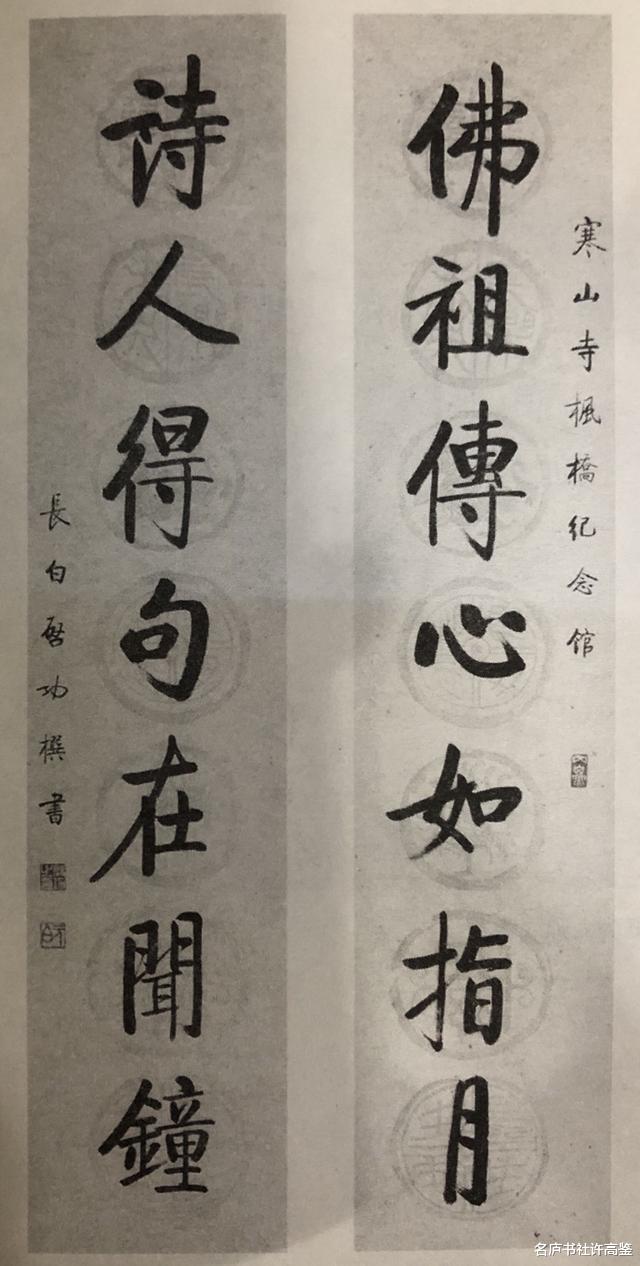 寒山寺楓橋纪念馆
佛祖傳心如指月
詩人得句在聞鐘
長白啓功撰書
名庐书社许高鉴